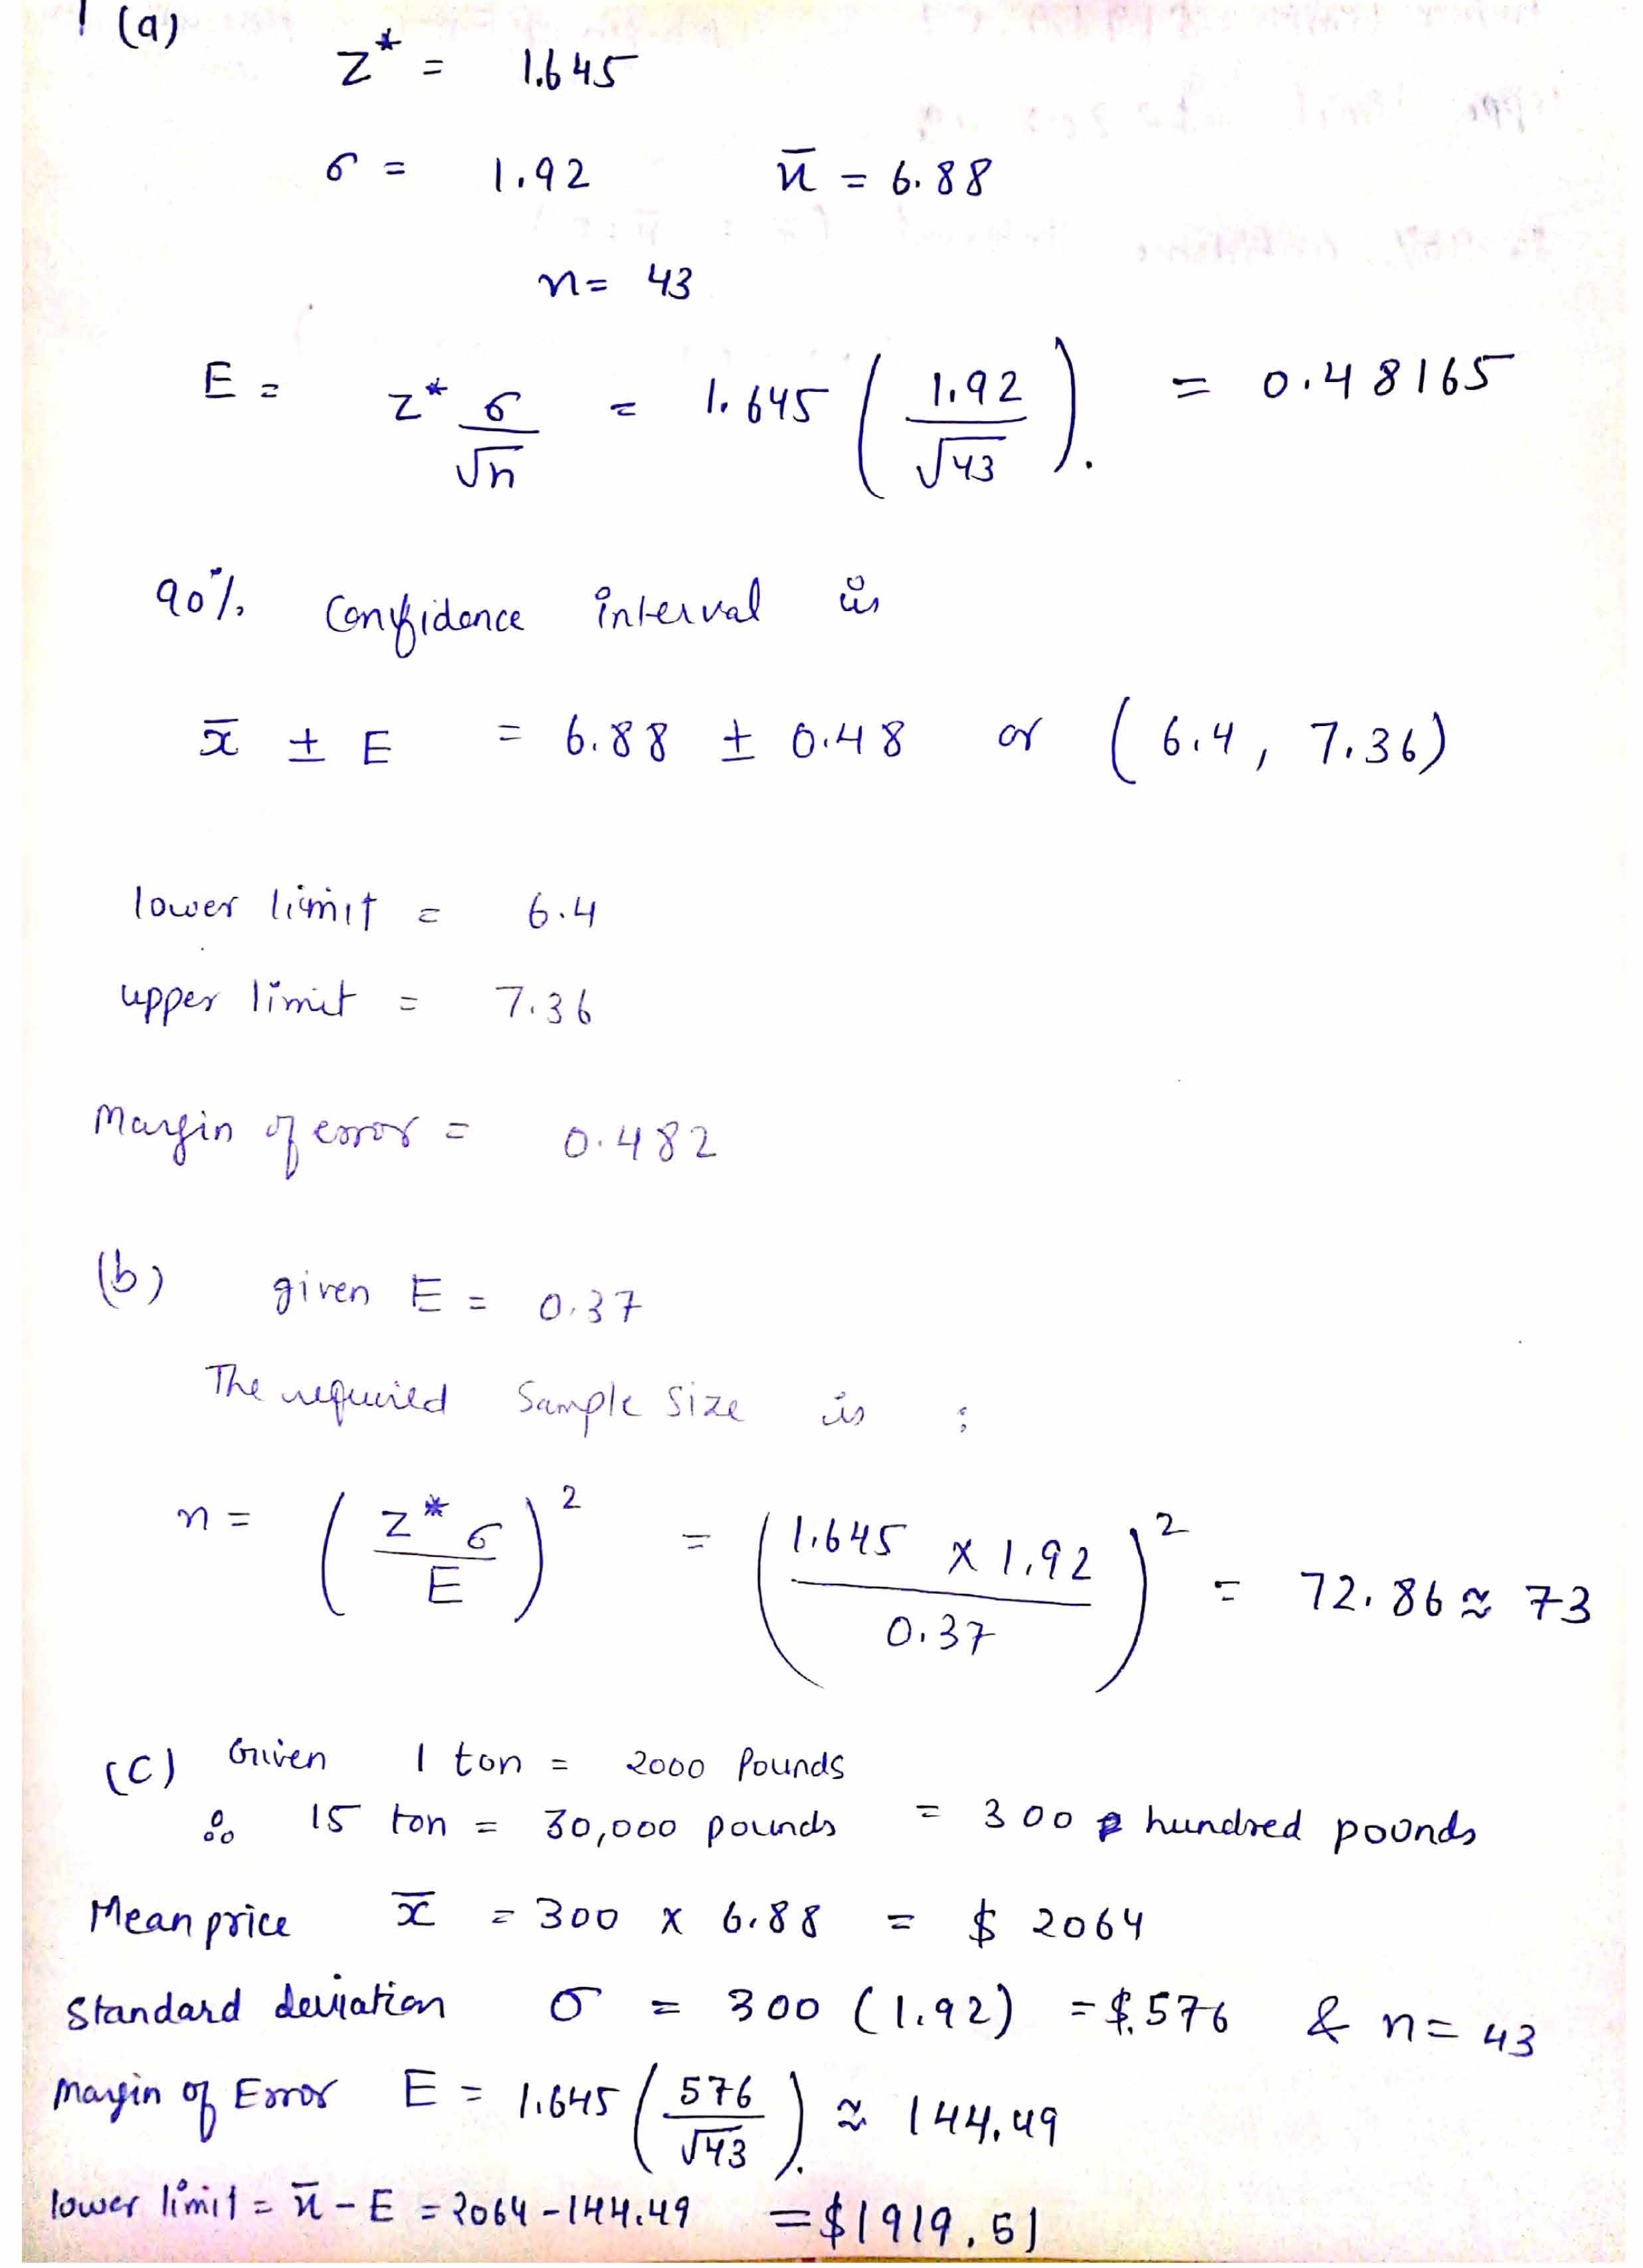 1 (a)
z* = 1.645
σ = 1.92 x̄ = 6.88
n = 43
E = z* σ/√n = 1.645 (1.92/√43). = 0.48165
90% Confidence interval is
x̄ ± E = 6.88 ± 0.48 or (6.4, 7.36)
lower limit = 6.4
upper limit = 7.36
Margin of error = 0.482
(b) given E = 0.37
The required Sample Size is :
n = (z* σ/E)² = (1.645 x 1.92/0.37)² = 72.86 ≈ 73
(C) Given 1 ton = 2000 Pounds
∴ 15 ton = 30,000 pounds = 300 hundred pounds
Mean price x̄ = 300 x 6.88 = $ 2064
Standard deviation σ = 300 (1.92) = $.576 & n = 43
Margin of Error E = 1.645 (576/√43). ≈ 144.49
lower limit = x̄ - E = 2064 - 144.49 = $1919.51